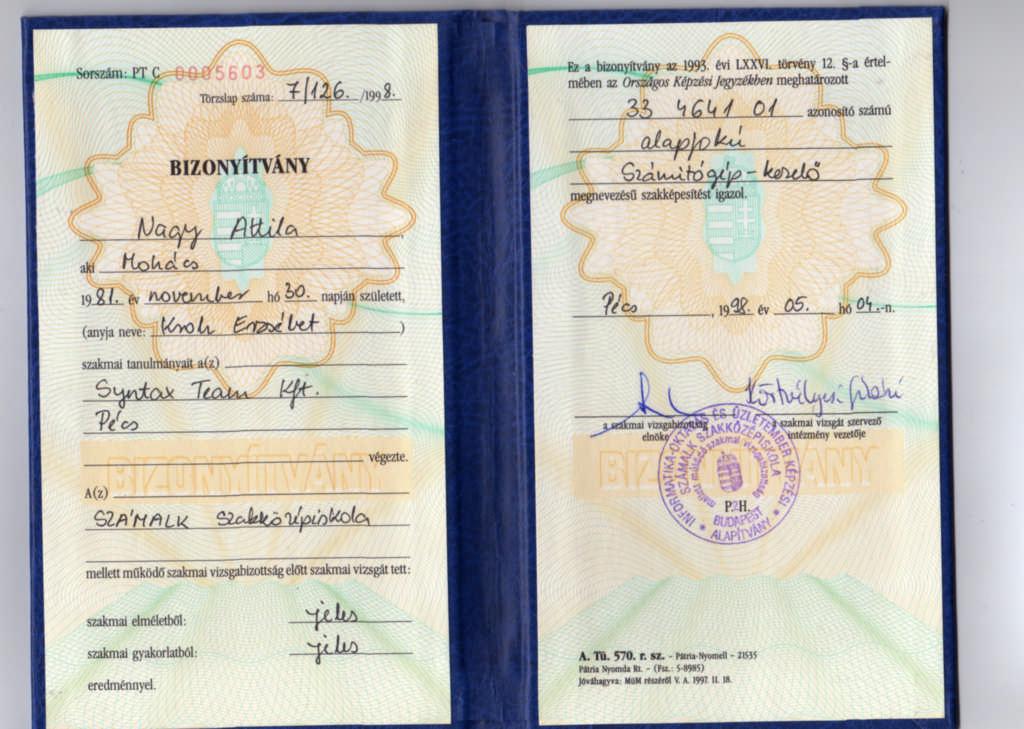 Sorszám: PT C 0005603
Törzslap száma: 7/126. /1998.
BIZONYÍTVÁNY
Nagy Attila
aki Mohács
1981. év november hó 30. napján született,
(anyja neve: Kroh Erzsébet )
szakmai tanulmányait a(z)
Syntax Team Kft.
Pécs
végezte.
BIZONYÍTVÁNY
A(z)
SZÁMALK Szakközépiskola
mellett működő szakmai vizsgabizottság előtt szakmai vizsgát tett:
szakmai elméletből: jeles
szakmai gyakorlatból: jeles
eredménnyel.
Ez a bizonyítvány az 1993. évi LXXVI. törvény 12. §-a értel-
mében az Országos Képzési Jegyzékben meghatározott
33 4641 01 azonosító számú
alapfokú
Számítógép-kezelő
megnevezésű szakképesítést igazol.
Pécs, 1998. év 05. hó 04.-n.
a szakmai vizsgabizottság
elnöke
a szakmai vizsgát szervező
intézmény vezetője
BIZONYÍTVÁNY
INFORMATIKA-OKTATÁS ÉS ÜZLETEMBER KÉPZÉSI ALAPÍTVÁNY
SZÁMALK SZAKKÖZÉPISKOLA
mellett működő szakmai vizsgabizottság
P.H.
2
BUDAPEST
A. Tü. 570. r. sz. – Pátria-Nyomell – 21535
Pátria Nyomda Rt. – (Fsz.: 5-8985)
Jóváhagyva: MüM részéről V. A. 1997. II. 18.